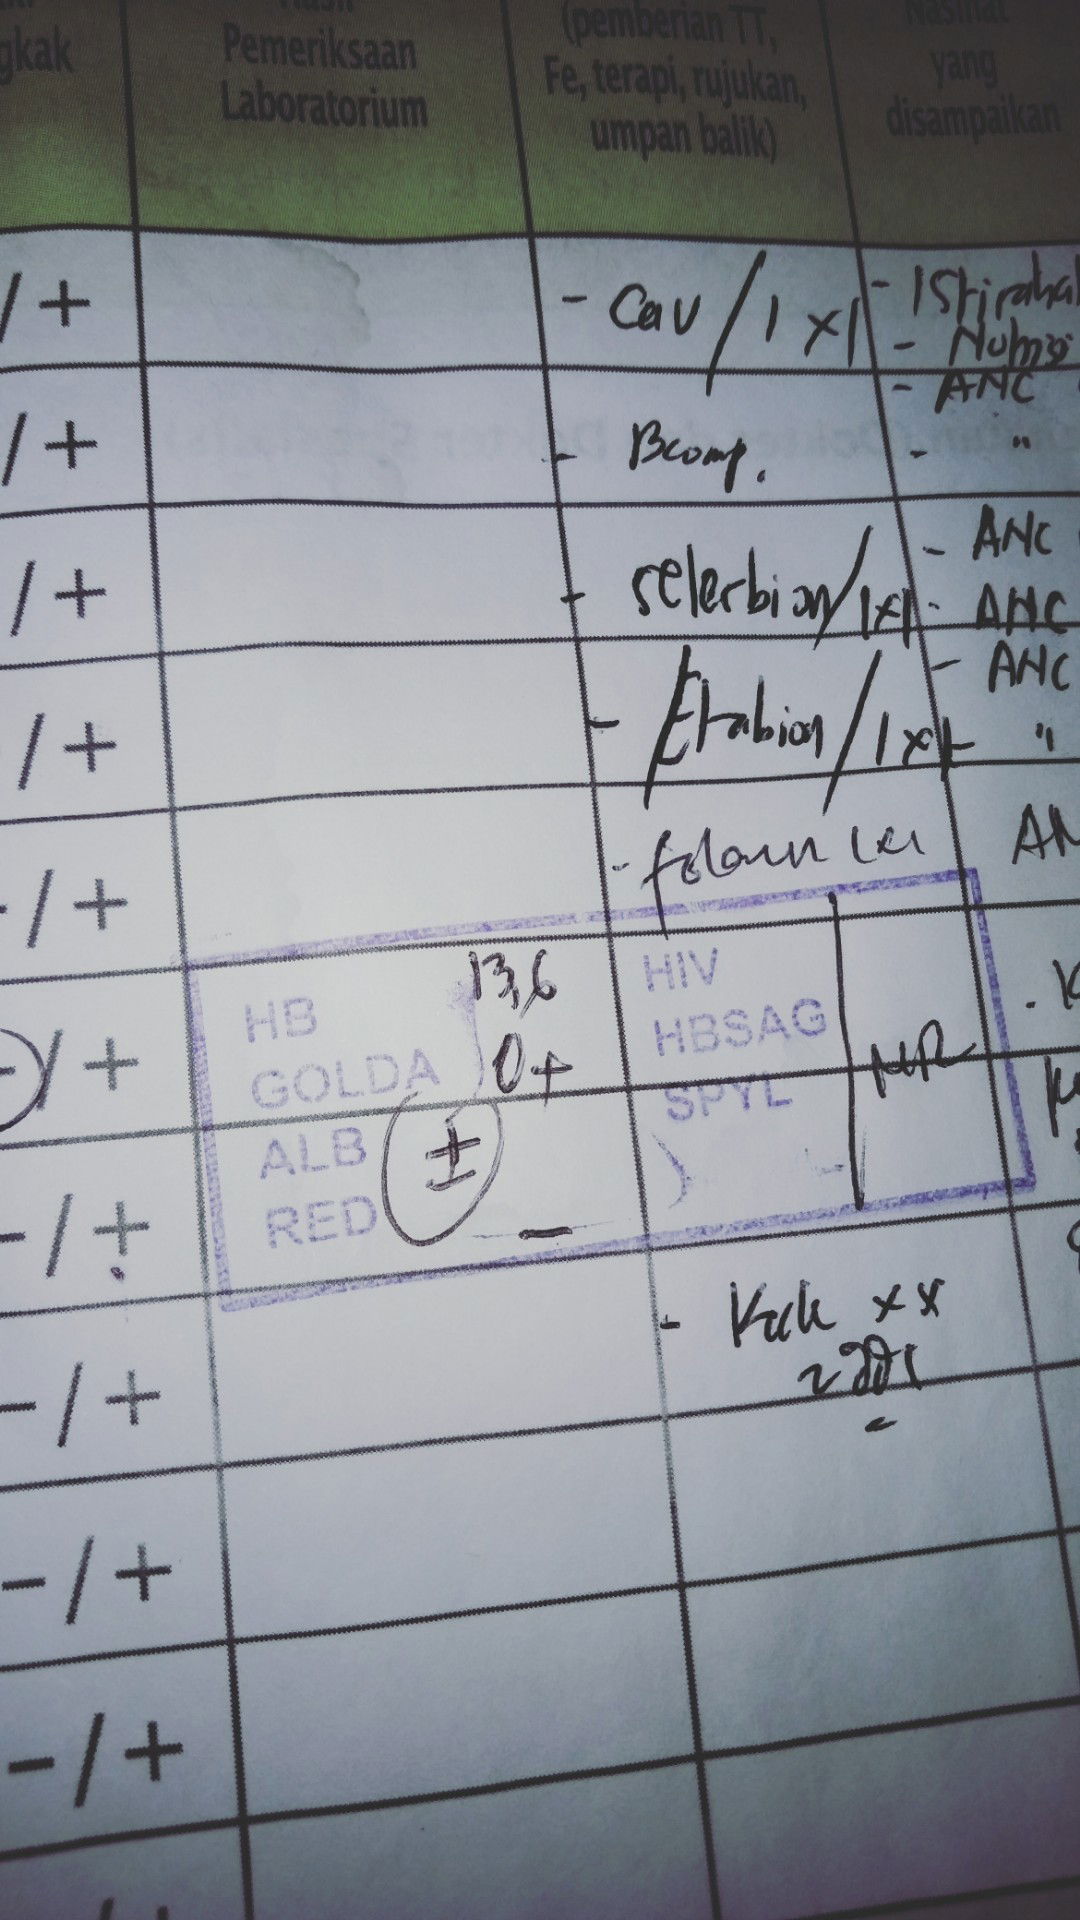 gkak
Hasil
Pemeriksaan
Laboratorium
(pemberian TT,
Fe, terapi, rujukan,
umpan balik)
Nasihat
yang
disampaikan
/ +
- Cav / 1x1
- Istirahat
- Nutrisi
- ANC
/ +
- Bcomp.
- "
/ +
- selerbion / 1x1
- ANC
- ANC
/ +
- Etabion / 1x1
- ANC
"
- / +
AN
- / +
HB 13,6
GOLDA O+
ALB ±
RED -
HIV
HBSAG
SPYL
NR
- / +
- / +
xx
- / +
- / +